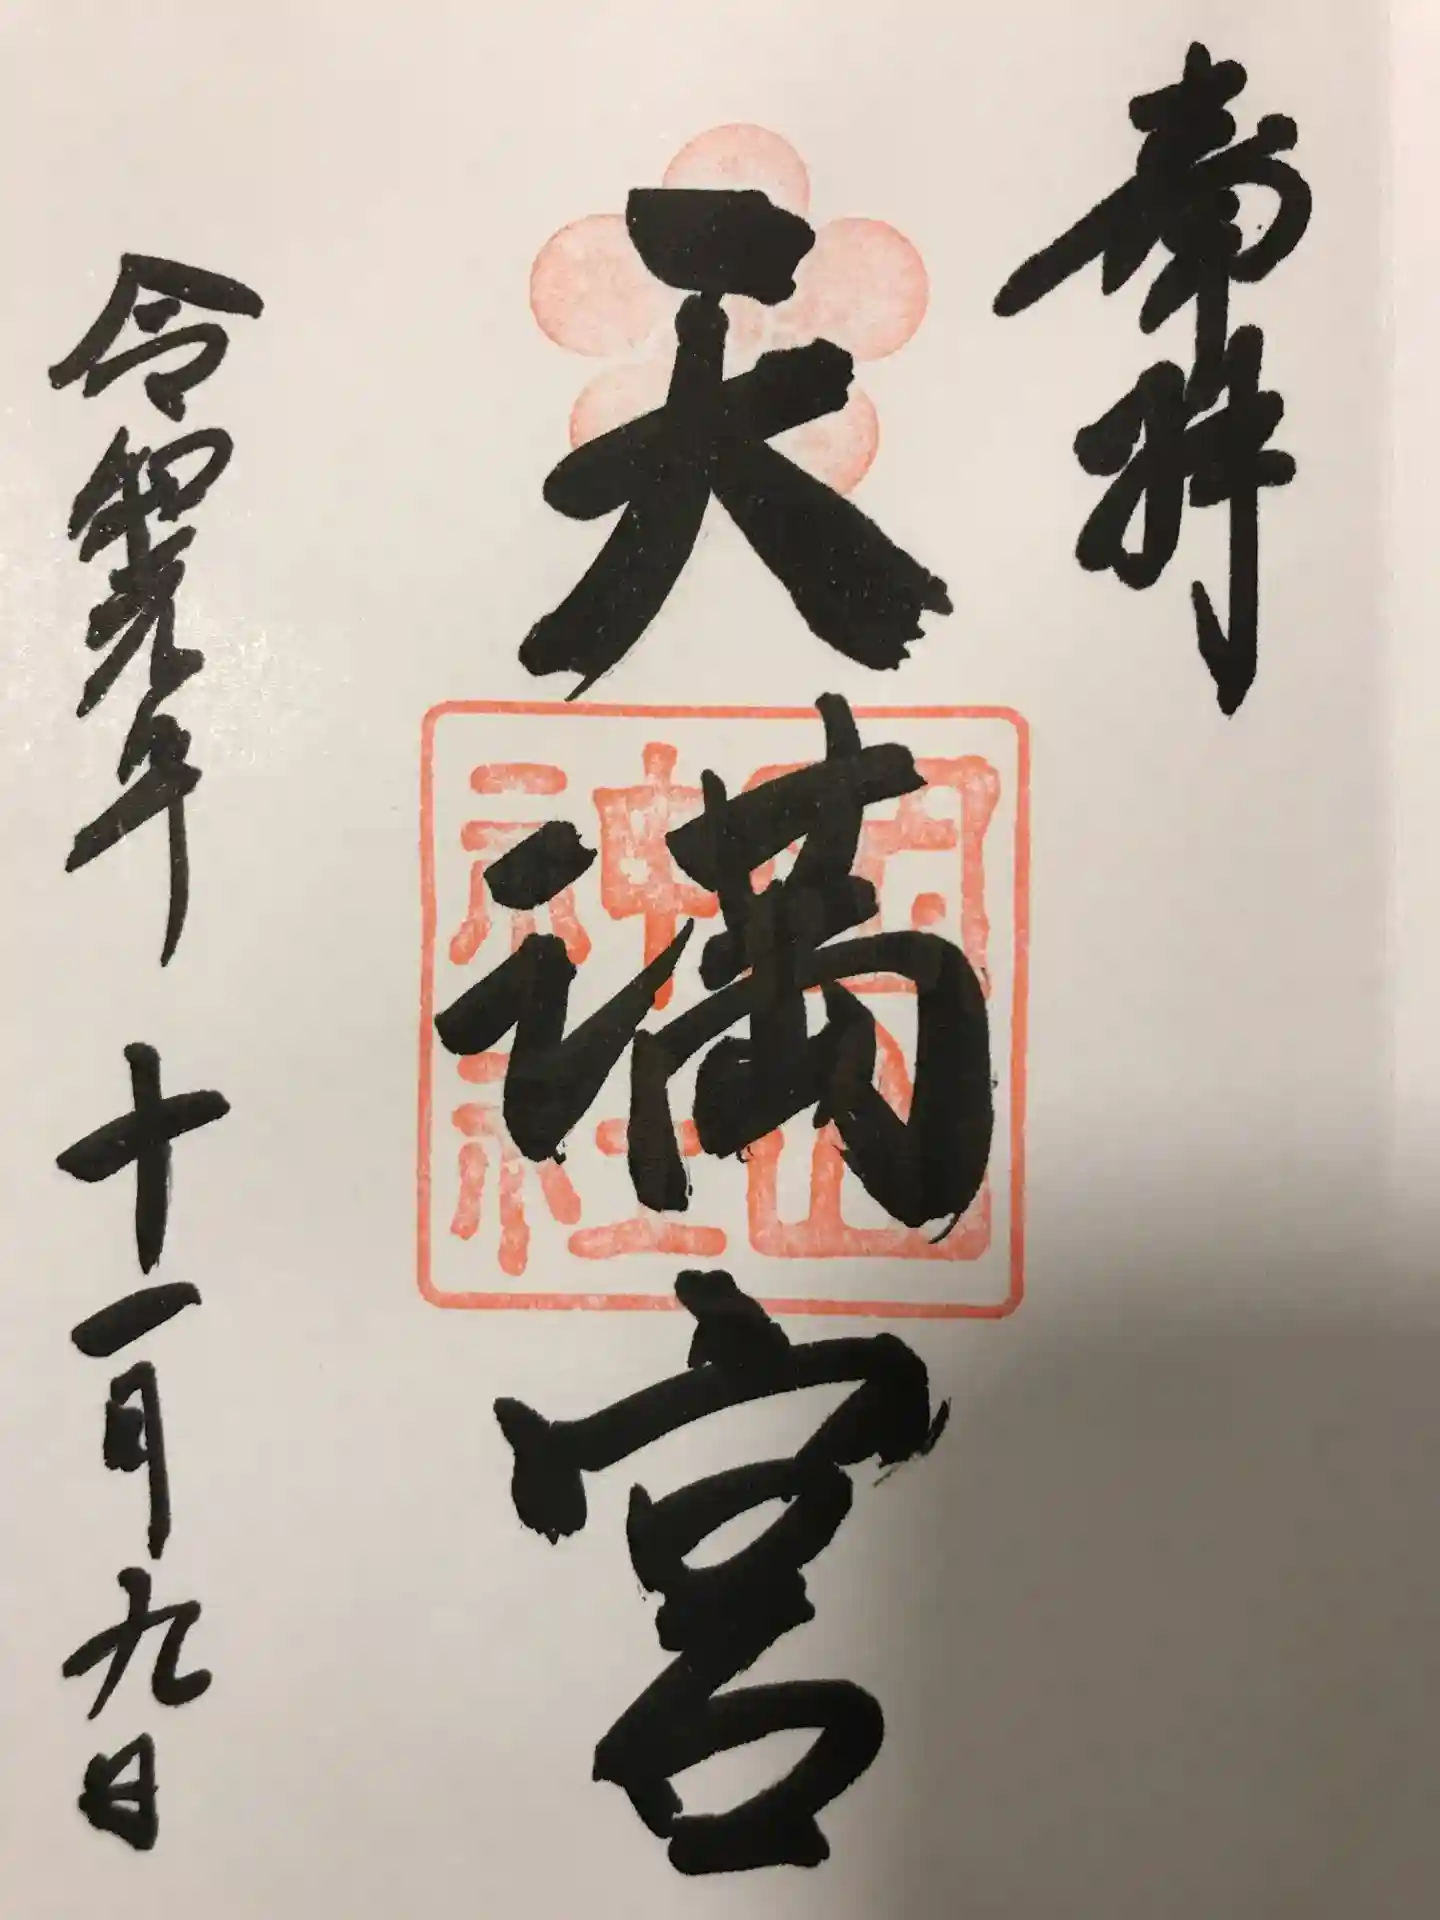 奉拝
天満宮
岡山
神社
令和元年十一月九日